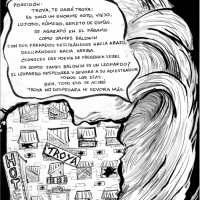 POSEIDÓN:
TROYA, TE DARÉ TROYA:
ES SOLO UN ENORME HOTEL VIEJO,
LUJOSO, HÚMERO, REPLETO DE ESPÍAS,
SE AGRARPÓ EN EL PÁRAMO
COMO JAMES BALDWIN
CON SUS PÁRPADOS DESLIZÁNDOSE HACIA ABAJO,
DESLIZÁNDOSE HACIA ARRIBA.
¿CONOCES ESE POEMA DE FREDERICK SEIDEL
EN DONDE JAMES BALDWIN ES UN LEOPARDO?
EL LEOPARDO DESPEDARA Y DEVORA A SU ADIESTRADOR
TODOS LOS DÍAS.
BIEN, TODO ESO SE ACABÓ.
TROYA NO DESPEDARA NI DEVORA MÁS.
TROYA
HOTEL